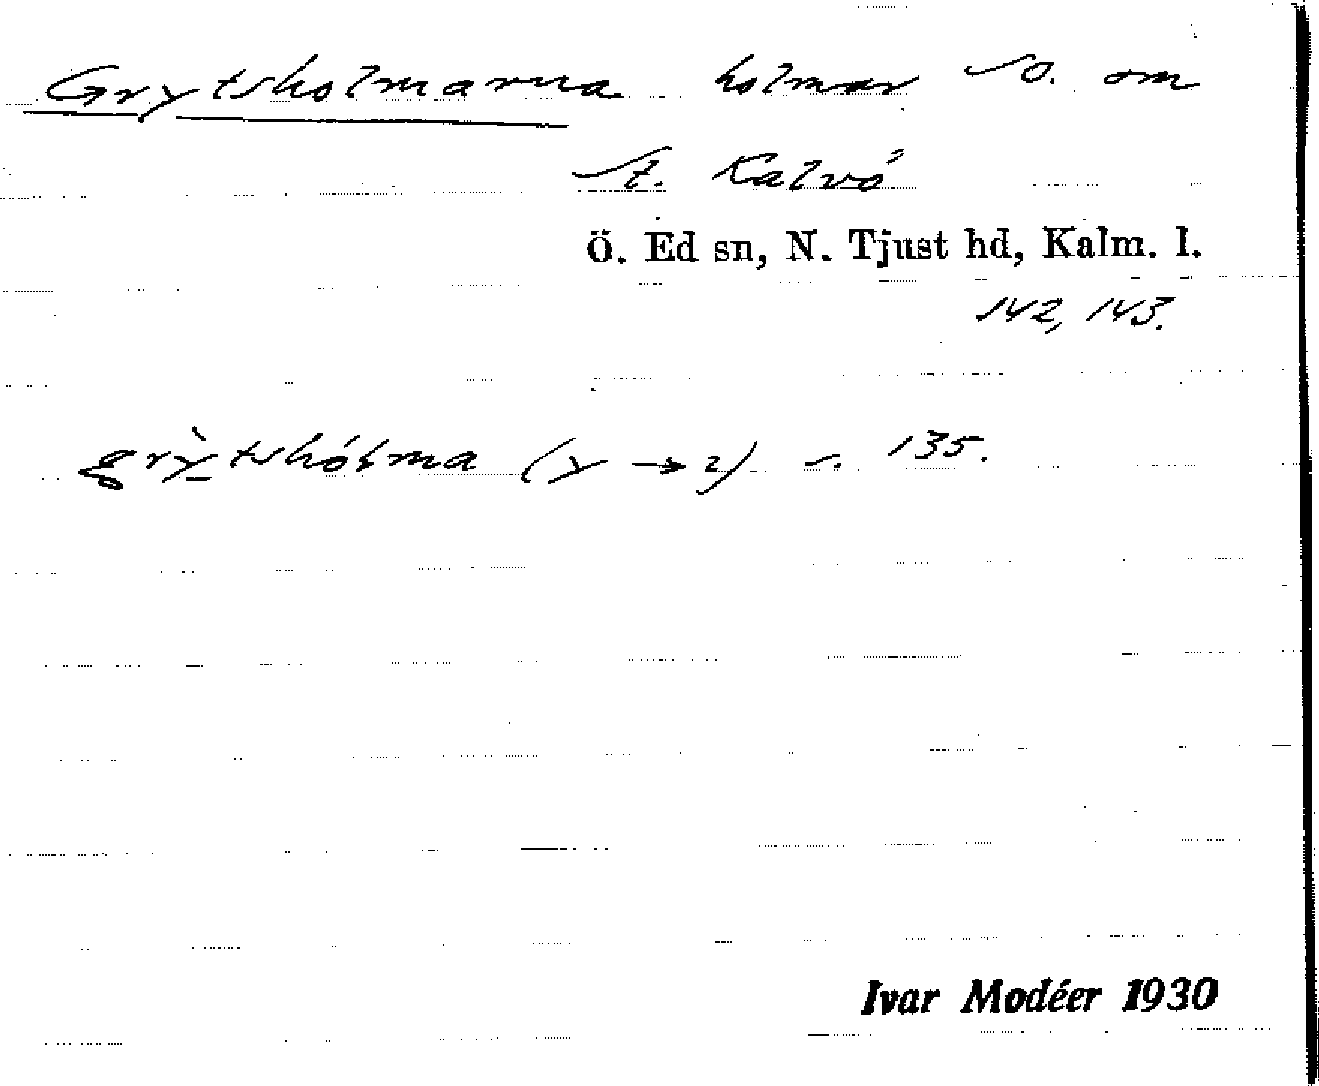 Grytsholmarna holmar SO. om
St. Kalvö
Ö. Ed sn, N. Tjust hd, Kalm. l.
142, 143.
135.
Ivar Modéer 1930